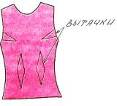 вытачки